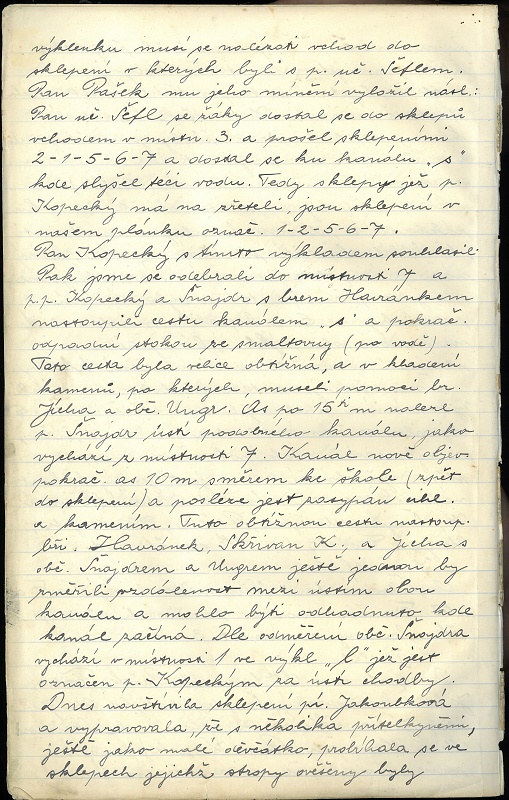 výklenku musí se nalézati vchod do
sklepení v kterých byli s p. uč. Šeflem.
Pan Pašek mu jeho mínění vyložil násl.:
Pan uč. Šefl se žáky dostal se do sklepů
vchodem v místn. 3. a prošel sklepeními
2-1-5-6-7 a dostal se ku kanálu „s"
kde slyšel téci vodu. Tedy sklepy jež p.
Kopecký má na zřeteli, jsou sklepení v
našem plánku označ. 1-2-5-6-7.
Pan Kopecký s tímto výkladem souhlasil.
Pak jsme se odebrali do místnosti 7 a
p.p. Kopecký a Šnajdr s brem Havránkem
nastoupili cestu kanálem „s" a pokrač.
odpadní stokou ze smaltovny (po vodě).
Tato cesta byla velice obtížná, a v kladení
kamenů, po kterých, museli pomoci br.
Jícha a obě. Ungr. As po 15ti m nalezl
p. Šnajdr ústí podobného kanálu, jako
vychází z místnosti 7. Kanál nově objev.
pokrač. as 10 m směrem ke škole (zpět
do sklepení) a posléze jest zasypán uhl.
a kamením. Tuto obtížnou cestu nastoup.
bři. Havránek, Skřivan K., a Jícha s
obě. Šnajdrem a Ungrem ještě jednou by
změřili vzdálenost mezi ústím obou
kanálu a mohlo býti odhadnuto kde
kanál začíná. Dle odměření obě. Šnajdra
vychází v místnosti 1 ve výkl „l" jež jest
označen p. Kopeckým za ústí chodby.
Dnes navštívila sklepení pí. Jakoubková
a vypravovala, že s několika přítelkyněmi,
ještě jako malé děvčátko, probíhala se ve
sklepech jejichž stropy ověšeny byly